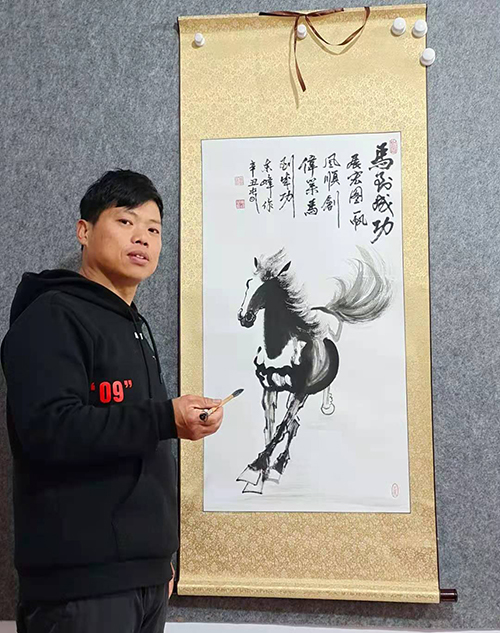 馬到成功
展宏图一帆
風順創
偉業馬
到成功
峰作
辛丑
“09”